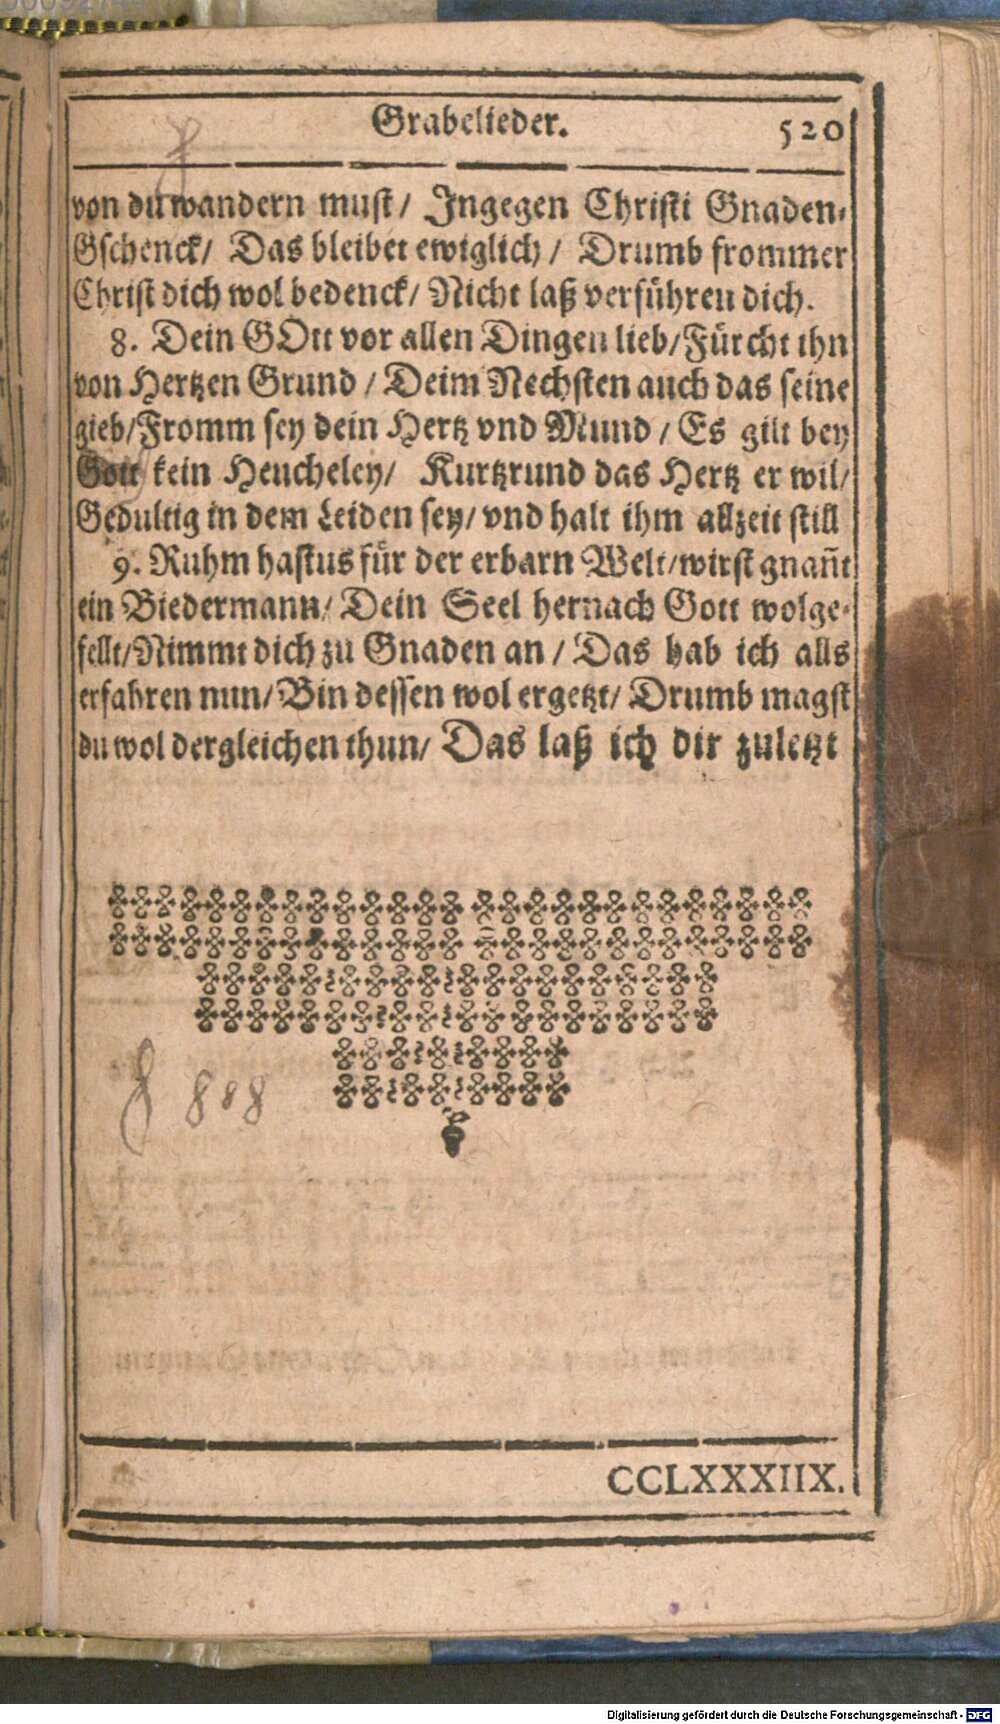 Grabelieder. 520
von du wandern must/ Ingegen Christi Gnaden-
Gschenck/ Das bleibet ewiglich/ Drumb frommer
Christ dich wol bedenck/ Nicht laß verführen dich.
8. Dein GOtt vor allen Dingen lieb/Fürcht ihn
von Hertzen Grund/ Deim Nechsten auch das seine
gieb/Fromm sey dein Hertz vnd Mund/ Es gilt bey
Gott kein Heucheley/ Kurtzrund das Hertz er wil/
Gedultig in dem Leiden sey/ vnd halt ihm allzeit still
9. Ruhm hastus für der erbarn Welt/wirst gnañt
ein Biedermann/ Dein Seel hernach Gott wolge-
fellt/Nimmt dich zu Gnaden an/ Das hab ich alls
erfahren nun/ Bin dessen wol ergetzt/ Drumb magst
du wol dergleichen thun/ Das laß ich dir zuletzt
888
CCLXXXIIX.
Digitalisierung gefördert durch die Deutsche Forschungsgemeinschaft - DFG